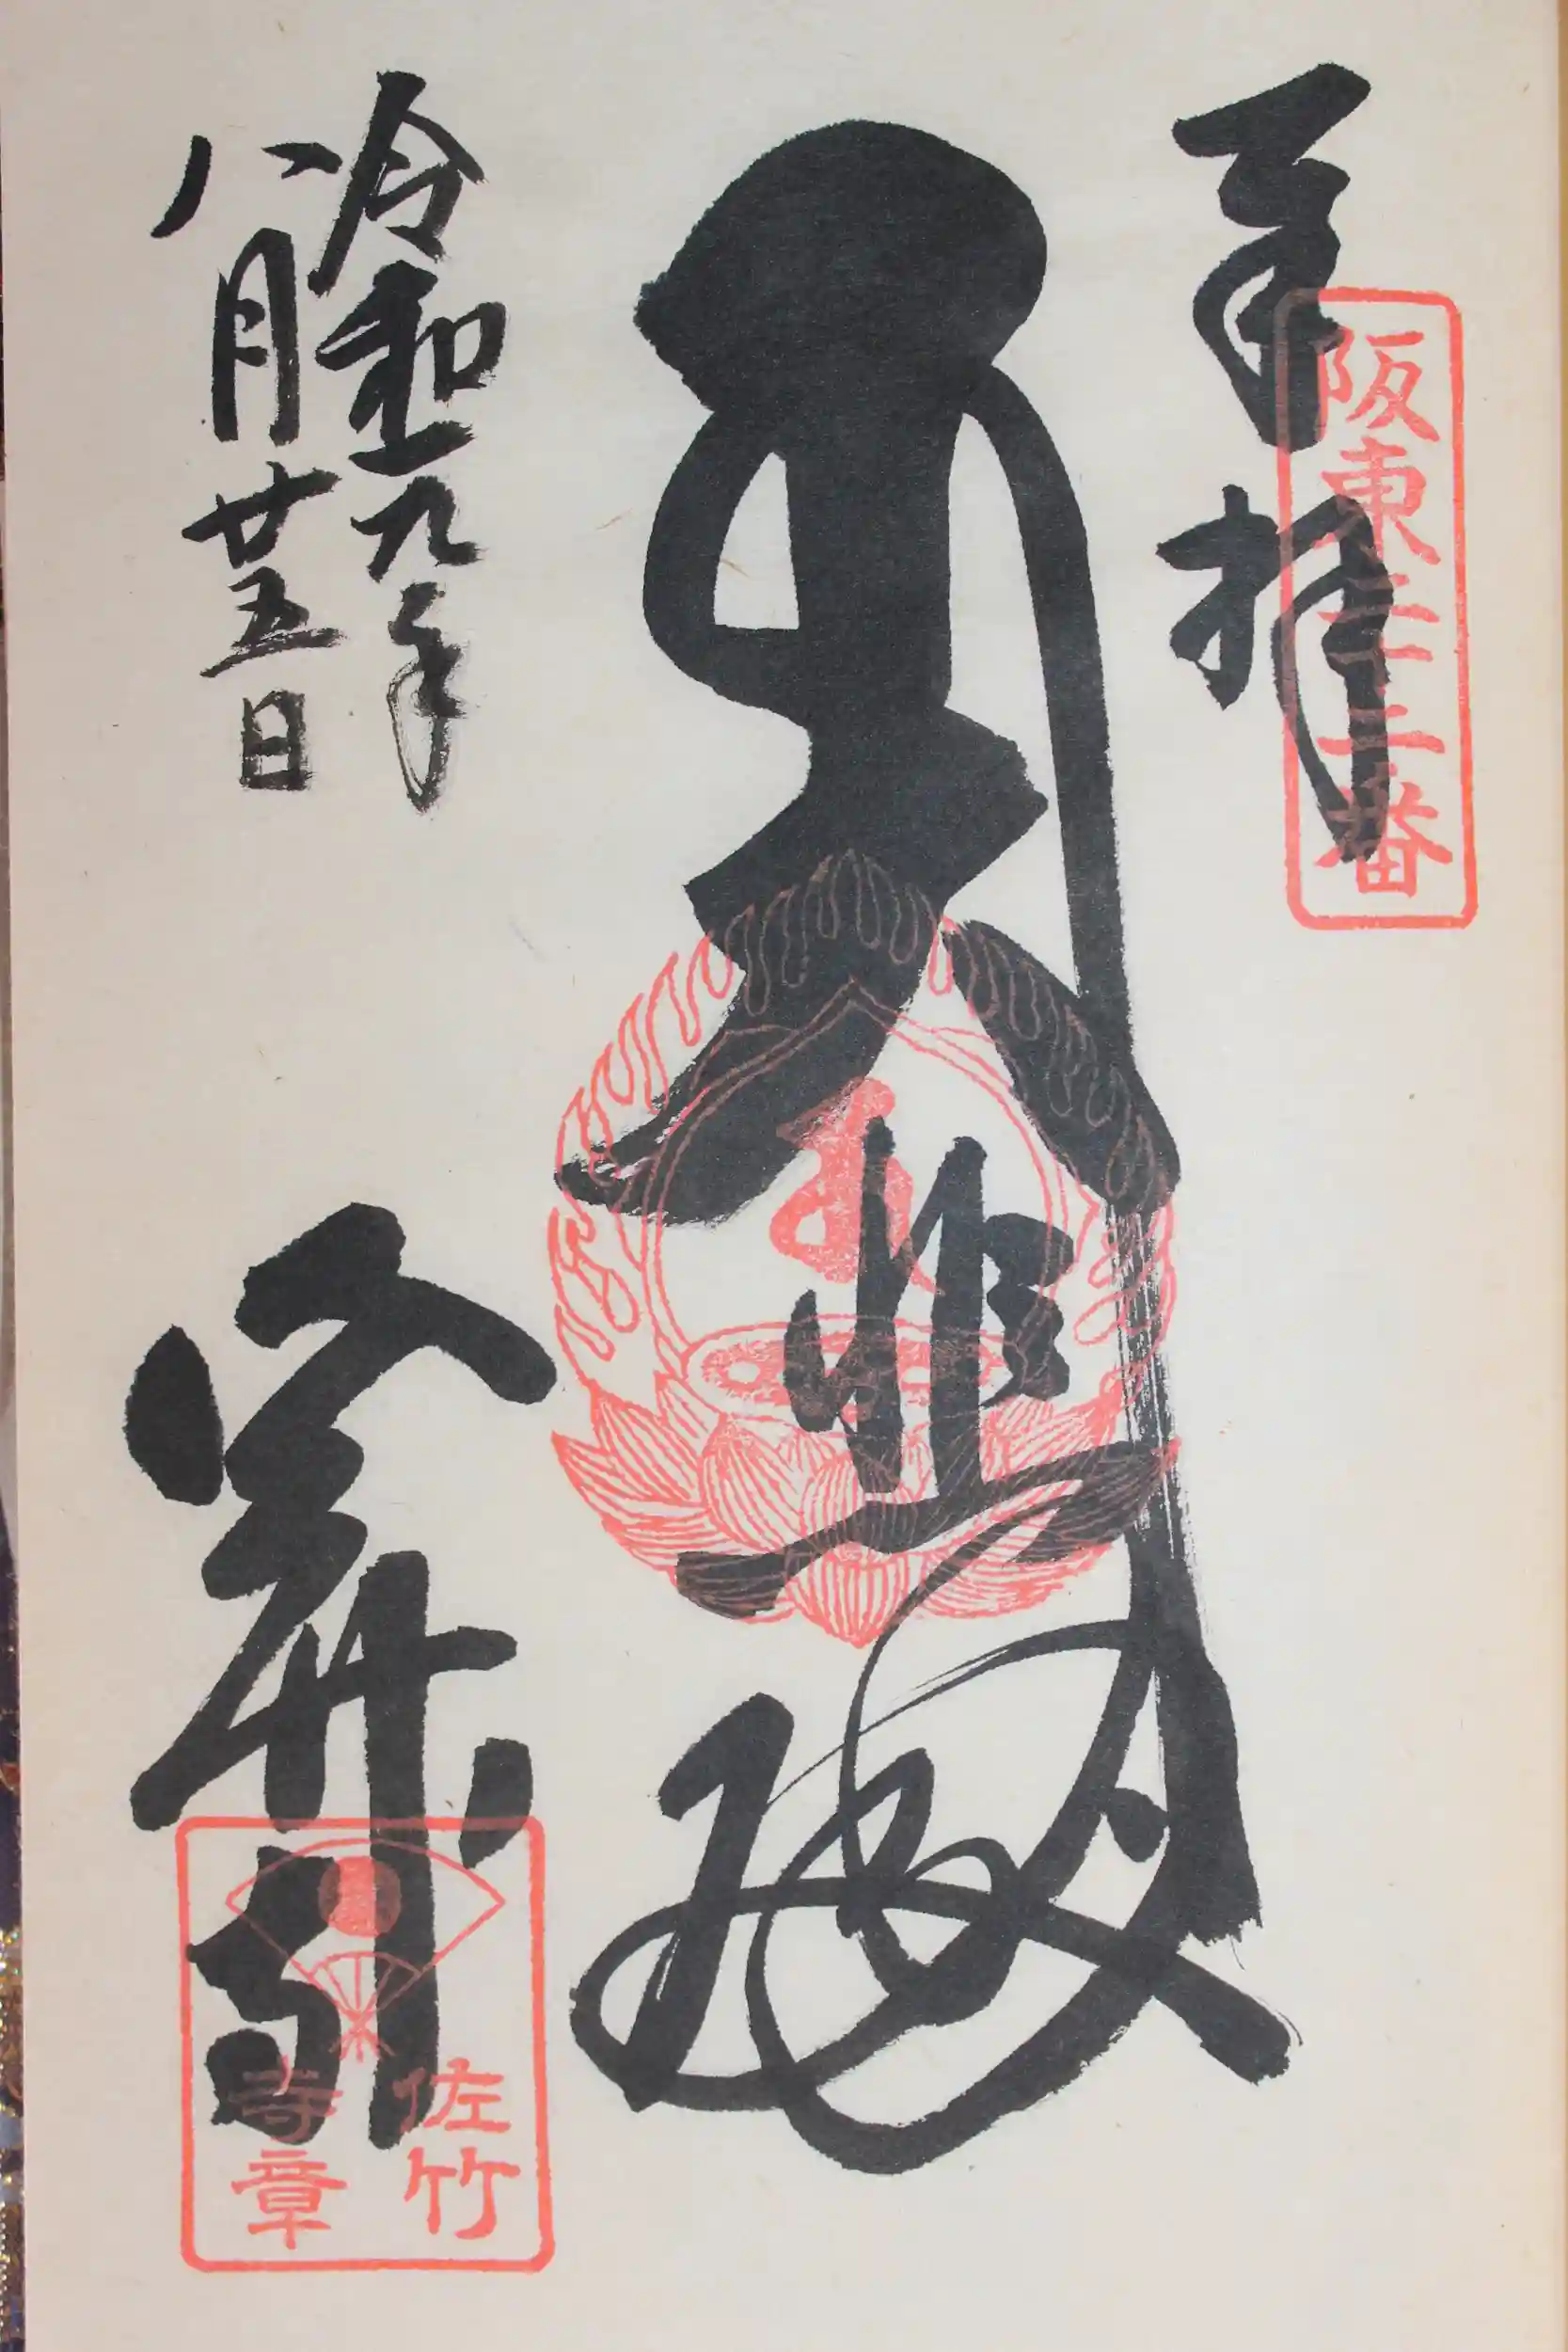 奉拝
阪東二十二番
大悲殿
令和元年
八月廿五日
佐竹
寺章